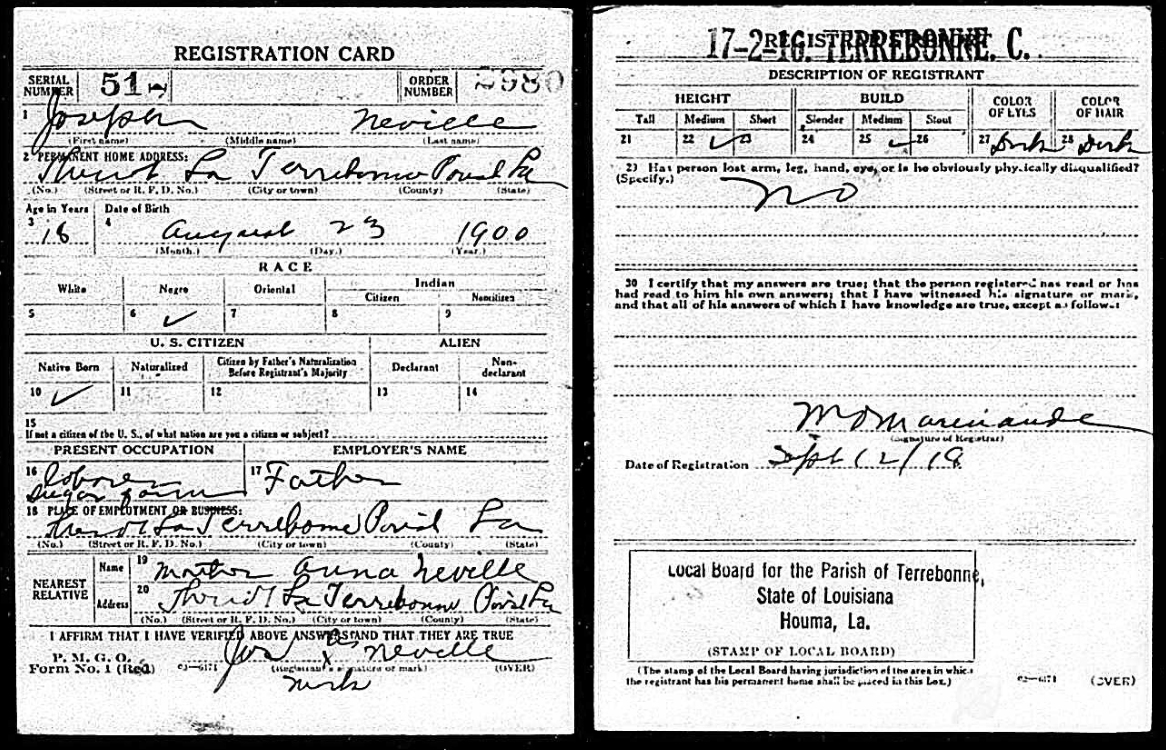 REGISTRATION CARD
SERIAL NUMBER 51
ORDER NUMBER 2980
1 Joseph Neville
(First name) (Middle name) (Last name)
2 PERMANENT HOME ADDRESS:
La Terrebonne La
(No.) (Street or R. F. D. No.) (City or town) (County) (State)
Age in Years Date of Birth
3 18 4 August 23 1900
(Month.) (Day.) (Year.)
RACE
White Negro Oriental Indian
Citizen Noncitizen
5 6 ✓ 7 8 9
U. S. CITIZEN ALIEN
Native Born Naturalized Citizen by Father's Naturalization Before Registrant's Majority Declarant Non-declarant
10 ✓ 11 12 13 14
15
If not a citizen of the U. S., of what nation are you a citizen or subject?
PRESENT OCCUPATION EMPLOYER'S NAME
16 laborer 17 Father
sugar farm
18 PLACE OF EMPLOYMENT OR BUSINESS:
La Terrebonne La
(No.) (Street or R. F. D. No.) (City or town) (County) (State)
NEAREST RELATIVE
Name 19 Mother Anna Neville
Address 20 La Terrebonne La
(No.) (Street or R. F. D. No.) (City or town) (County) (State)
I AFFIRM THAT I HAVE VERIFIED ABOVE ANSWERS AND THAT THEY ARE TRUE
P. M. G. O.
Form No. 1 (Red) 03—6171 Jos his x Neville
(Registrant's signature or mark) (OVER)
mark
17-2-16. TERREBONNE. C.
DESCRIPTION OF REGISTRANT
HEIGHT BUILD COLOR OF EYES COLOR OF HAIR
Tall Medium Short Slender Medium Stout
21 22 ✓ 23 24 25 ✓ 26 27 Dark 28 Dark
29 Has person lost arm, leg, hand, eye, or is he obviously physically disqualified?
(Specify.)
No
30 I certify that my answers are true; that the person registered has read or has
had read to him his own answers; that I have witnessed his signature or mark,
and that all of his answers of which I have knowledge are true, except as follows:
(Signature of Registrar)
Date of Registration Sept 12/18
Local Board for the Parish of Terrebonne,
State of Louisiana
Houma, La.
(STAMP OF LOCAL BOARD)
(The stamp of the Local Board having jurisdiction of the area in which
the registrant has his permanent home shall be placed in this box.)
03—6171 (OVER)